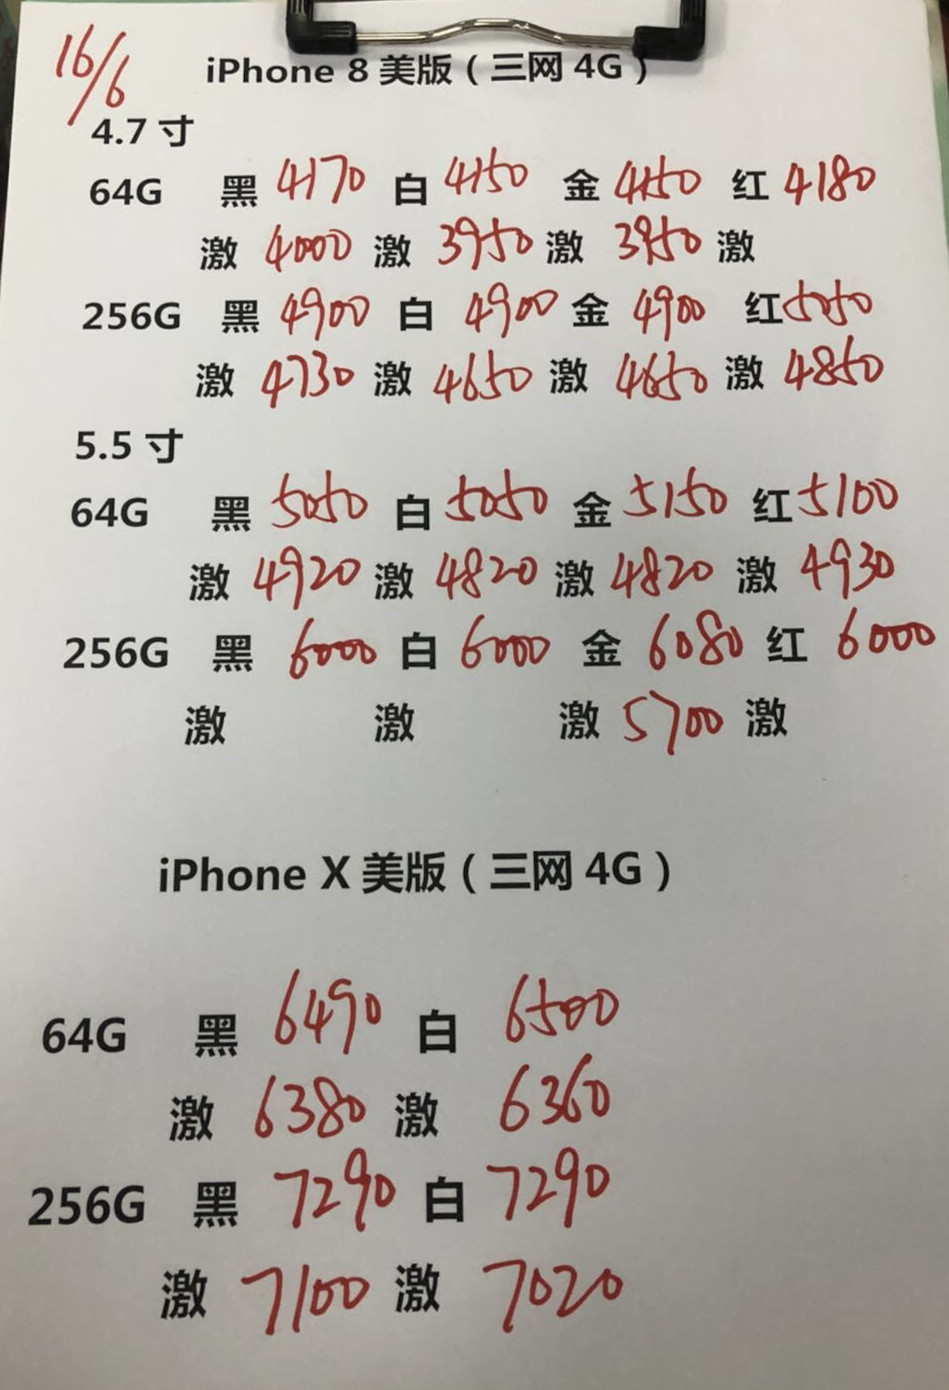 16/6
iPhone 8 美版（三网 4G）
4.7 寸
64G 黑 4170 白 4150 金 4150 红 4180
激 4000 激 3950 激 3950 激
256G 黑 4900 白 4900 金 4900 红 5050
激 4730 激 4650 激 4650 激 4850
5.5 寸
64G 黑 5050 白 5050 金 5150 红 5100
激 4920 激 4820 激 4820 激 4930
256G 黑 6000 白 6000 金 6080 红 6000
激 激 激 5700 激
iPhone X 美版（三网 4G）
64G 黑 6490 白 6500
激 6380 激 6360
256G 黑 7290 白 7290
激 7100 激 7020